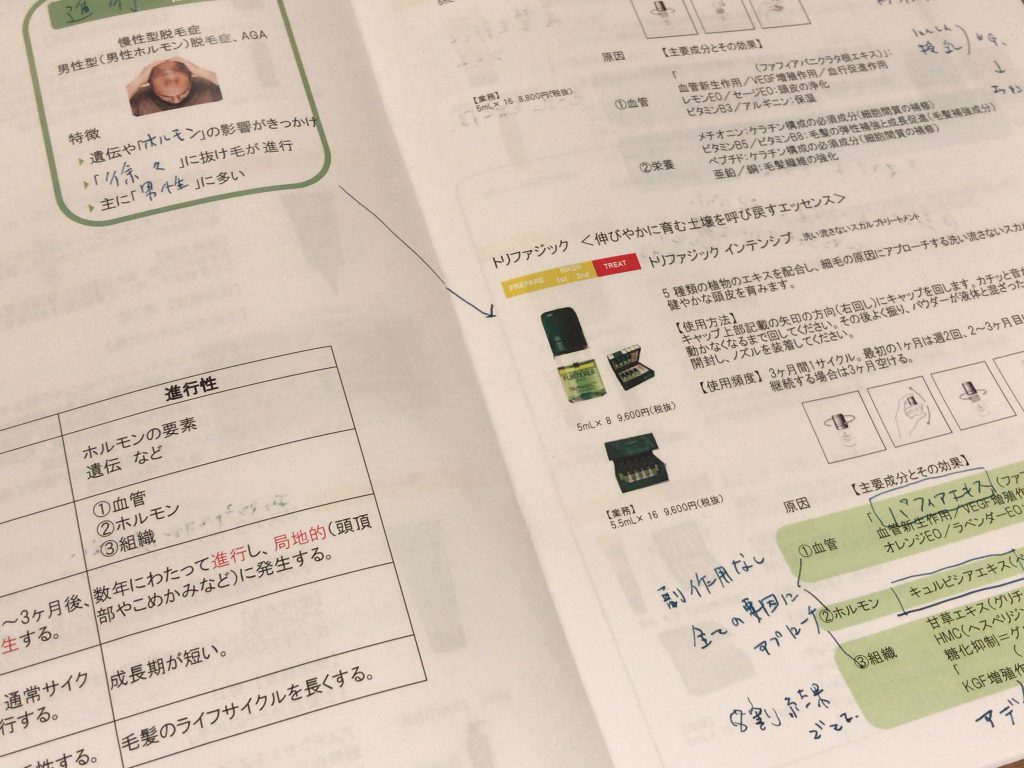 進行
慢性型脱毛症
男性型(男性ホルモン)脱毛症、AGA
特徴
遺伝や「ホルモン」の影響がきっかけ
「徐々」に抜け毛が進行
主に「男性」に多い
進行性
ホルモンの要素
遺伝 など
①血管
②ホルモン
③組織
～3ヶ月後、
生する。
数年にわたって進行し、局地的(頭頂
部やこめかみなど)に発生する。
通常サイク
行する。
成長期が短い。
毛髪のライフサイクルを長くする。
【業務】
5mL× 16 8,800円(税抜)
原因 【主要成分とその効果】
①血管
「 (ファフィアパニクラタ根エキス)」:
血管新生作用/VEGF増殖作用/血行促進作用
レモンEO/セージEO:頭皮の浄化
ビタミンB3/アルギニン:保湿
②栄養
メチオニン:ケラチン構成の必須成分(細胞間質の補修)
ビタミンB5/ビタミンB8:毛髪の弾性補強と成長促進(毛髪補強成分)
ペプチド:ケラチン構成の必須成分(細胞間質の補修)
亜鉛/銅:毛髪繊維の強化
トリファジック <伸びやかに育む土壌を呼び戻すエッセンス>
PREPARE WASH 1st 2nd TREAT
トリファジック インテンシブ 洗い流さないスカルプトリートメント
5種類の植物のエキスを配合し、細毛の原因にアプローチする洗い流さないスカル
健やかな頭皮を育みます。
【使用方法】
キャップ上部記載の矢印の方向(右回し)にキャップを回します。カチッと音
動かなくなるまで回してください。その後よく振り、パウダーが液体と混ざった
開封し、ノズルを装着してください。
【使用頻度】3ヶ月間1サイクル。最初の1ヶ月は週2回、2～3ヶ月目
継続する場合は3ヶ月空ける。
FURTERER
5mL× 8 9,600円(税抜)
【業務】
5.5mL× 16 9,600円(税抜)
原因 【主要成分とその効果】
①血管
「パフィアエキス(ファ
血管新生作用/VEGF増殖作
オレンジEO/ラベンダーEO
②ホルモン
キュルビシアエキス(
③組織
甘草エキス(グリチ
HMC(ヘスペリジ
糖化抑制=ゲ
「 (
KGF増殖作
アデ
副作用なし
全ての要因に
アプローチ
8割結果
でてる。